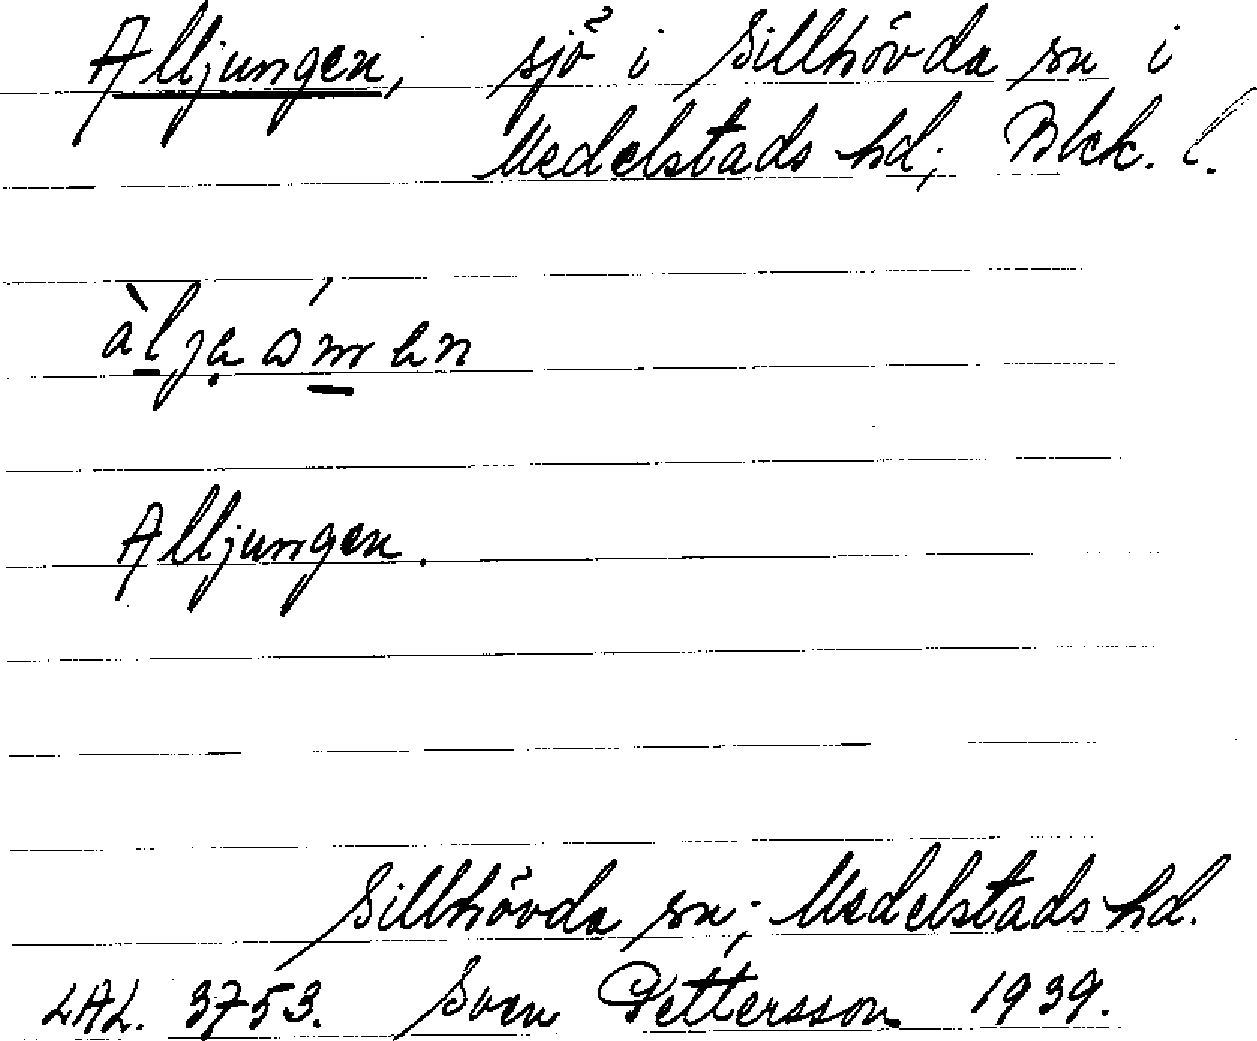 Alljungen, sjö i Sillhövda sn i
Medelstads hd; Blek. l.
Alljungen.
Sillhövda sn; Medelstads hd.
LAL. 3753. Sven Pettersson 1939.